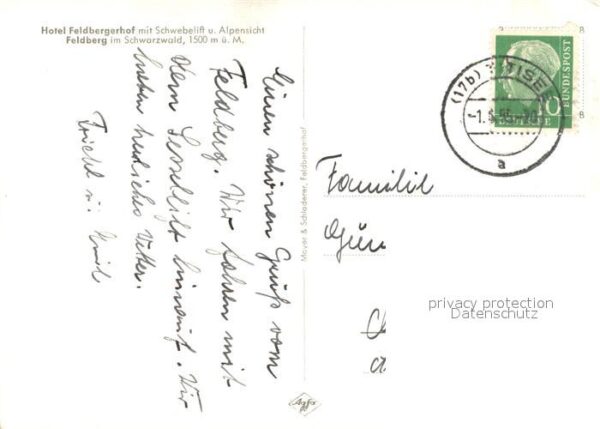 Hotel Feldbergerhof mit Schwebelift u. Alpensicht
Feldberg im Schwarzwald, 1500 m ü. M.
Einen schönen Gruß vom
Feldberg. Wir fahren mit
dem Sessellift hinauf. Wir
haben herliches Wetter.
Mayer & Schladerer, Feldbergerhof
(17b)
DEUTSCHE BUNDESPOST
10
a
Familie
privacy protection
Datenschutz
Agfa